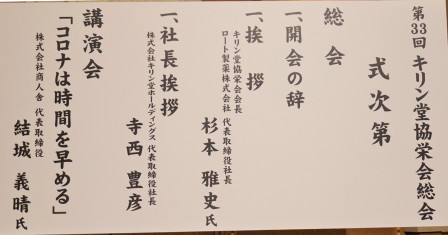 第33回 キリン堂協栄会総会
式次第
総会
一、開会の辞
一、挨拶
キリン堂協栄会会長
ロート製薬株式会社 代表取締役社長
杉本 雅史氏
一、社長挨拶
株式会社キリン堂ホールディングス 代表取締役社長
寺西 豊彦
講演会
「コロナは時間を早める」
株式会社商人舎 代表取締役
結城 義晴氏